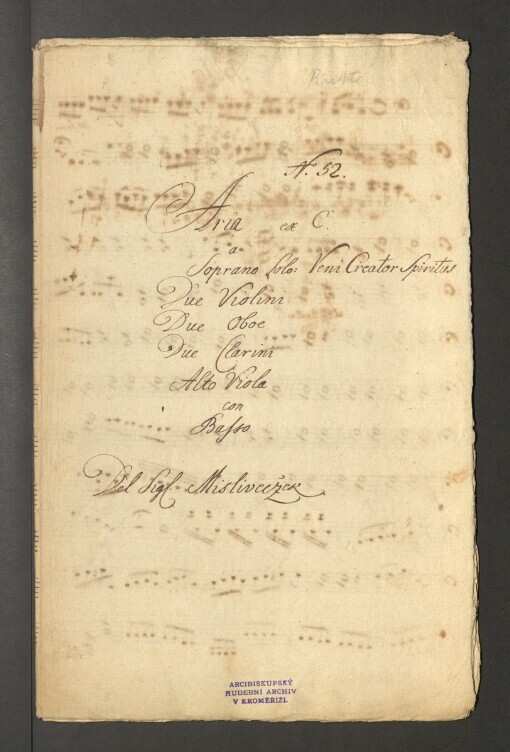 N: 52.
Aria ex C.
a
Soprano Solo: Veni Creator Spiritus
Due Violini
Due Oboe
Due Clarini
Alto Viola
con
Basso
Del Sigl. Misliveczek
ARCIBISKUPSKÝ
HUDEBNÍ ARCHIV
V KROMĚŘÍŽI.